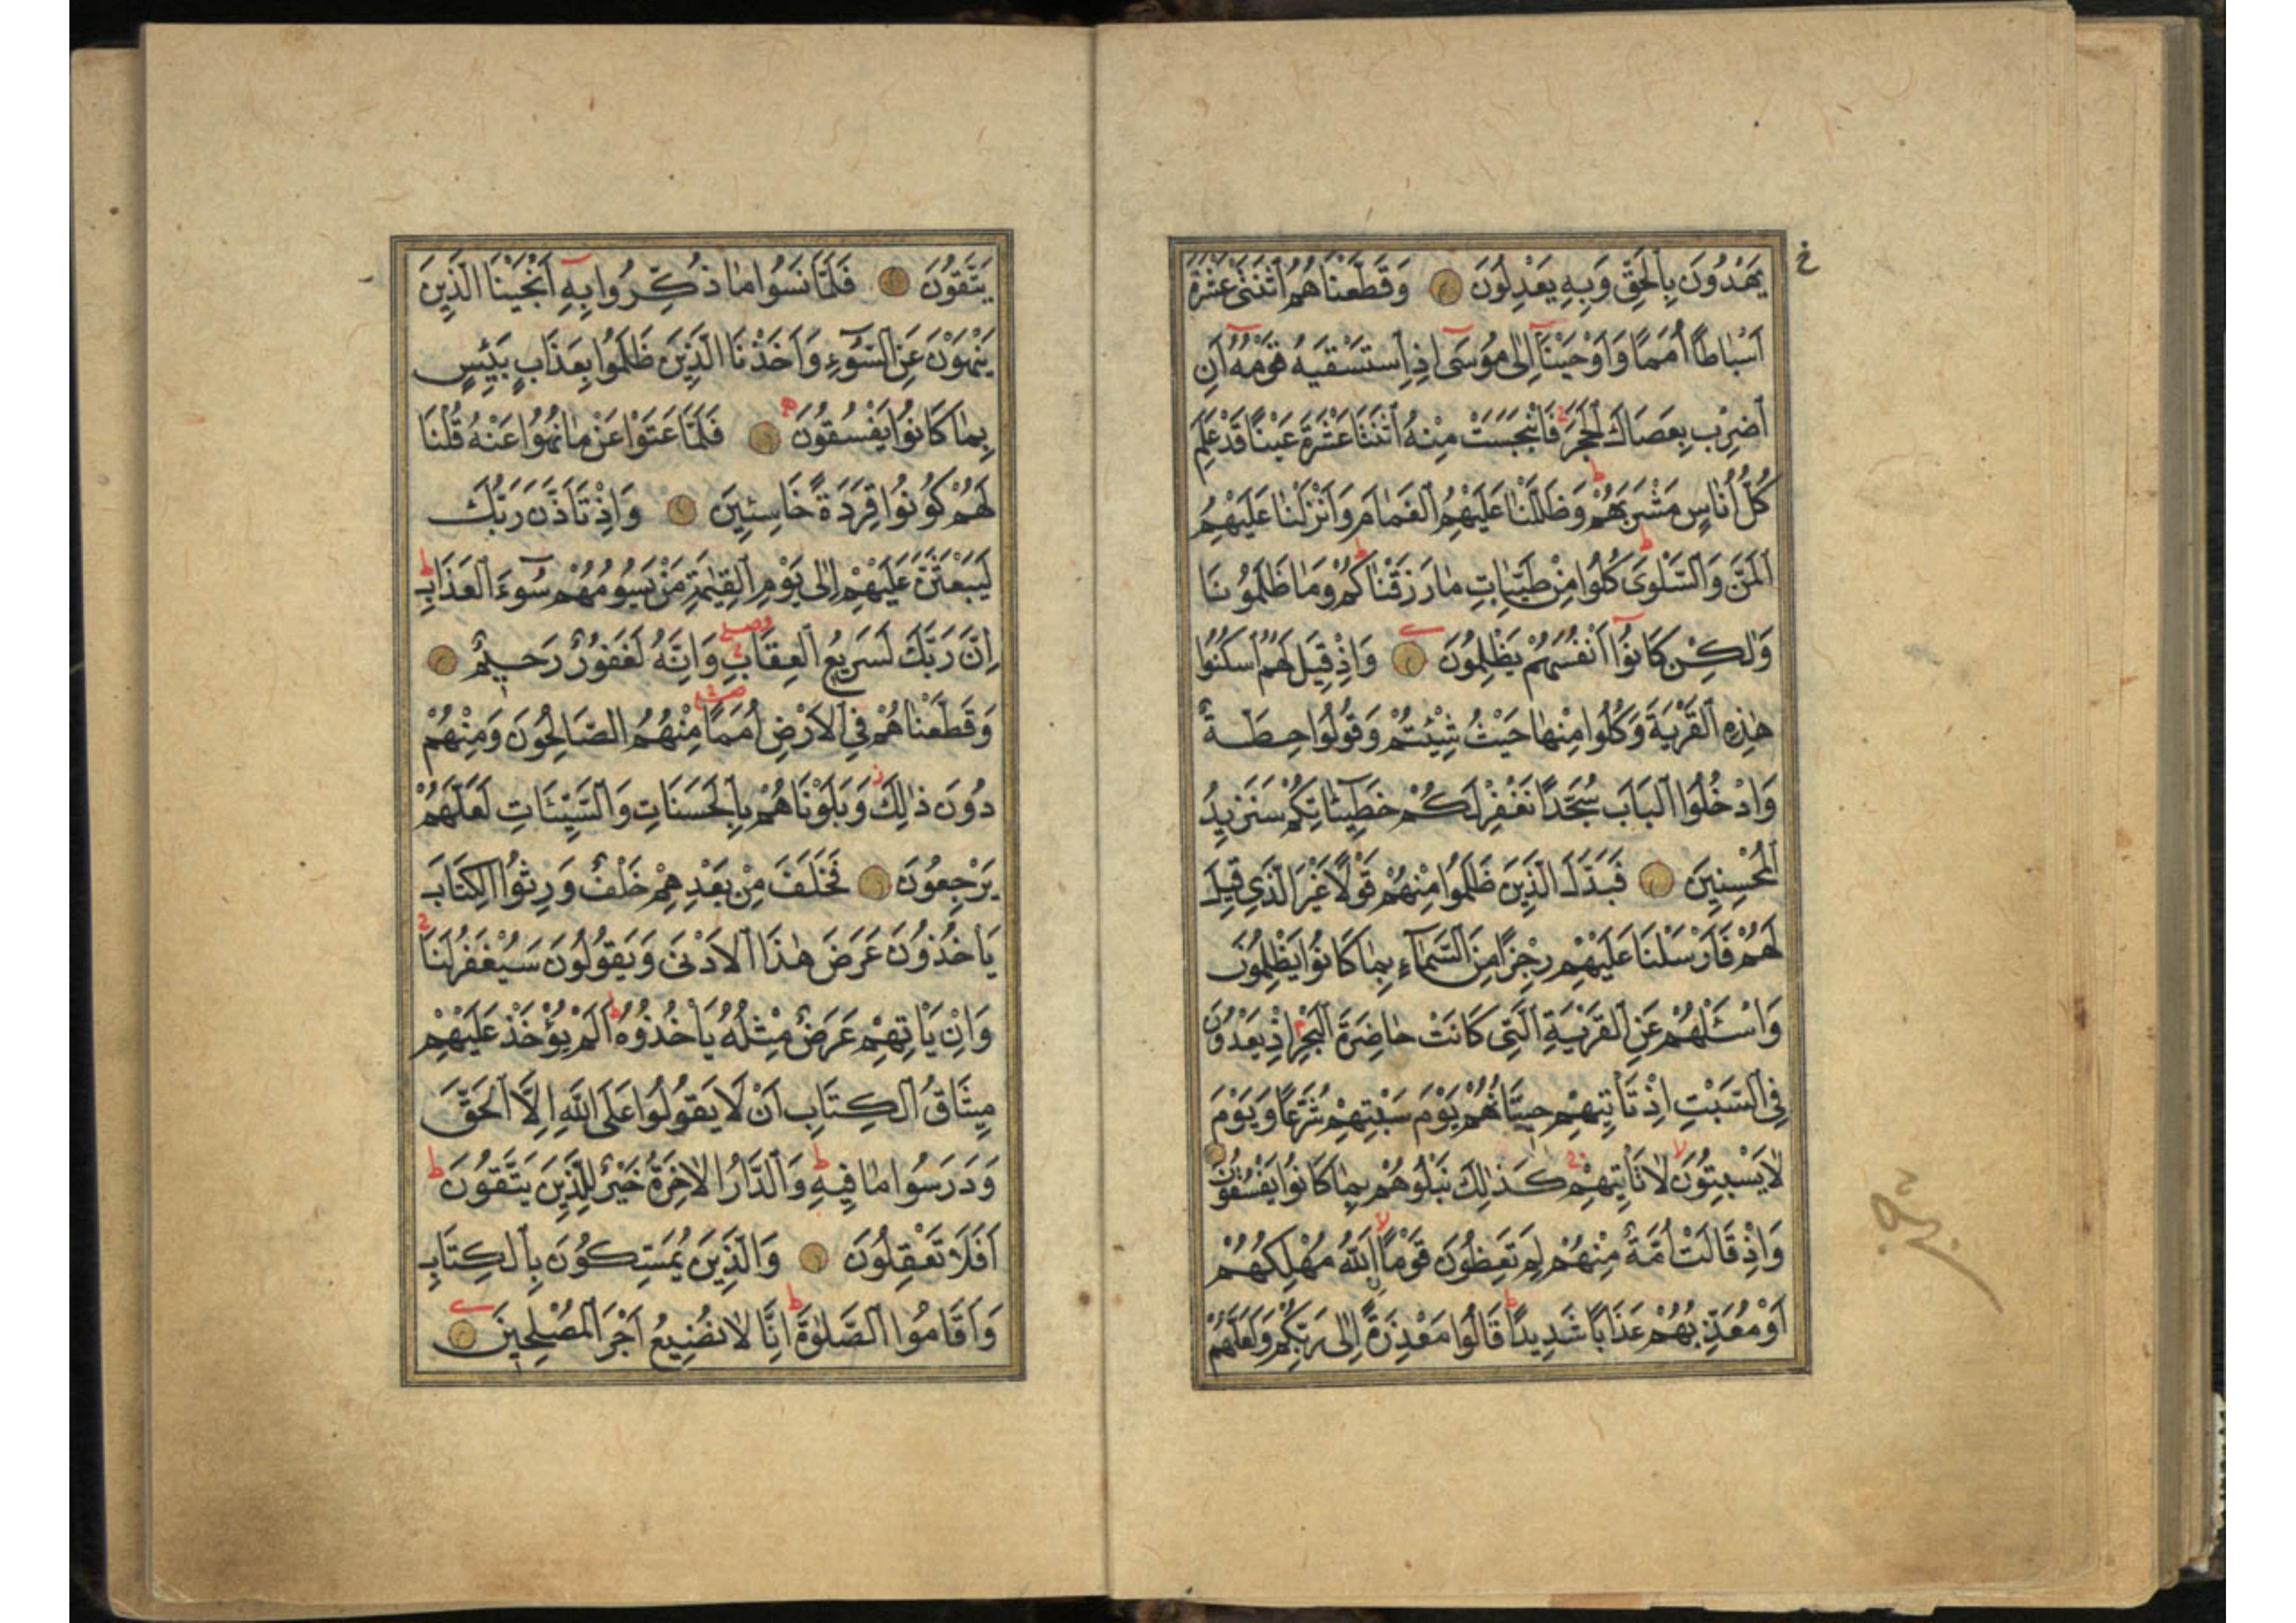 يَهْدُونَ بِالْحَقِّ وَبِهِ يَعْدِلُونَ وَقَطَّعْنَاهُمُ اثْنَتَيْ عَشْرَةَ
اَسْبَاطًا اُمَمًا وَاَوْحَيْنَا اِلٰى مُوسٰى اِذِ اسْتَسْقٰيهُ قَوْمُهُ اَنِ
اضْرِبْ بِعَصَاكَ الْحَجَرَ فَانْبَجَسَتْ مِنْهُ اثْنَتَا عَشْرَةَ عَيْنًا قَدْ عَلِمَ
كُلُّ اُنَاسٍ مَشْرَبَهُمْ وَظَلَّلْنَا عَلَيْهِمُ الْغَمَامَ وَاَنْزَلْنَا عَلَيْهِمُ
الْمَنَّ وَالسَّلْوٰى كُلُوا مِنْ طَيِّبَاتِ مَا رَزَقْنَاكُمْ وَمَا ظَلَمُونَا
وَلٰكِنْ كَانُوا اَنْفُسَهُمْ يَظْلِمُونَ وَاِذْ قِيلَ لَهُمُ اسْكُنُوا
هٰذِهِ الْقَرْيَةَ وَكُلُوا مِنْهَا حَيْثُ شِئْتُمْ وَقُولُوا حِطَّةٌ
وَادْخُلُوا الْبَابَ سُجَّدًا نَغْفِرْ لَكُمْ خَطِيئَاتِكُمْ سَنَزِيدُ
الْمُحْسِنِينَ فَبَدَّلَ الَّذِينَ ظَلَمُوا مِنْهُمْ قَوْلًا غَيْرَ الَّذِي قِيلَ
لَهُمْ فَاَرْسَلْنَا عَلَيْهِمْ رِجْزًا مِنَ السَّمَاءِ بِمَا كَانُوا يَظْلِمُونَ
وَاسْئَلْهُمْ عَنِ الْقَرْيَةِ الَّتِي كَانَتْ حَاضِرَةَ الْبَحْرِ اِذْ يَعْدُونَ
فِي السَّبْتِ اِذْ تَأْتِيهِمْ حِيتَانُهُمْ يَوْمَ سَبْتِهِمْ شُرَّعًا وَيَوْمَ
لَا يَسْبِتُونَ لَا تَأْتِيهِمْ كَذٰلِكَ نَبْلُوهُمْ بِمَا كَانُوا يَفْسُقُونَ
وَاِذْ قَالَتْ اُمَّةٌ مِنْهُمْ لِمَ تَعِظُونَ قَوْمًا اللّٰهُ مُهْلِكُهُمْ
اَوْ مُعَذِّبُهُمْ عَذَابًا شَدِيدًا قَالُوا مَعْذِرَةً اِلٰى رَبِّكُمْ وَلَعَلَّهُمْ
يَتَّقُونَ فَلَمَّا نَسُوا مَا ذُكِّرُوا بِهِ اَنْجَيْنَا الَّذِينَ
يَنْهَوْنَ عَنِ السُّوءِ وَاَخَذْنَا الَّذِينَ ظَلَمُوا بِعَذَابٍ بَئِيسٍ
بِمَا كَانُوا يَفْسُقُونَ فَلَمَّا عَتَوْا عَنْ مَا نُهُوا عَنْهُ قُلْنَا
لَهُمْ كُونُوا قِرَدَةً خَاسِئِينَ وَاِذْ تَاَذَّنَ رَبُّكَ
لَيَبْعَثَنَّ عَلَيْهِمْ اِلٰى يَوْمِ الْقِيٰمَةِ مَنْ يَسُومُهُمْ سُوءَ الْعَذَابِ
اِنَّ رَبَّكَ لَسَرِيعُ الْعِقَابِ وَاِنَّهُ لَغَفُورٌ رَحِيمٌ
وَقَطَّعْنَاهُمْ فِي الْاَرْضِ اُمَمًا مِنْهُمُ الصَّالِحُونَ وَمِنْهُمْ
دُونَ ذٰلِكَ وَبَلَوْنَاهُمْ بِالْحَسَنَاتِ وَالسَّيِّئَاتِ لَعَلَّهُمْ
يَرْجِعُونَ فَخَلَفَ مِنْ بَعْدِهِمْ خَلْفٌ وَرِثُوا الْكِتَابَ
يَأْخُذُونَ عَرَضَ هٰذَا الْاَدْنٰى وَيَقُولُونَ سَيُغْفَرُ لَنَا
وَاِنْ يَأْتِهِمْ عَرَضٌ مِثْلُهُ يَأْخُذُوهُ اَلَمْ يُؤْخَذْ عَلَيْهِمْ
مِيثَاقُ الْكِتَابِ اَنْ لَا يَقُولُوا عَلَى اللّٰهِ اِلَّا الْحَقَّ
وَدَرَسُوا مَا فِيهِ وَالدَّارُ الْاٰخِرَةُ خَيْرٌ لِلَّذِينَ يَتَّقُونَ
اَفَلَا تَعْقِلُونَ وَالَّذِينَ يُمَسِّكُونَ بِالْكِتَابِ
وَاَقَامُوا الصَّلٰوةَ اِنَّا لَا نُضِيعُ اَجْرَ الْمُصْلِحِينَ